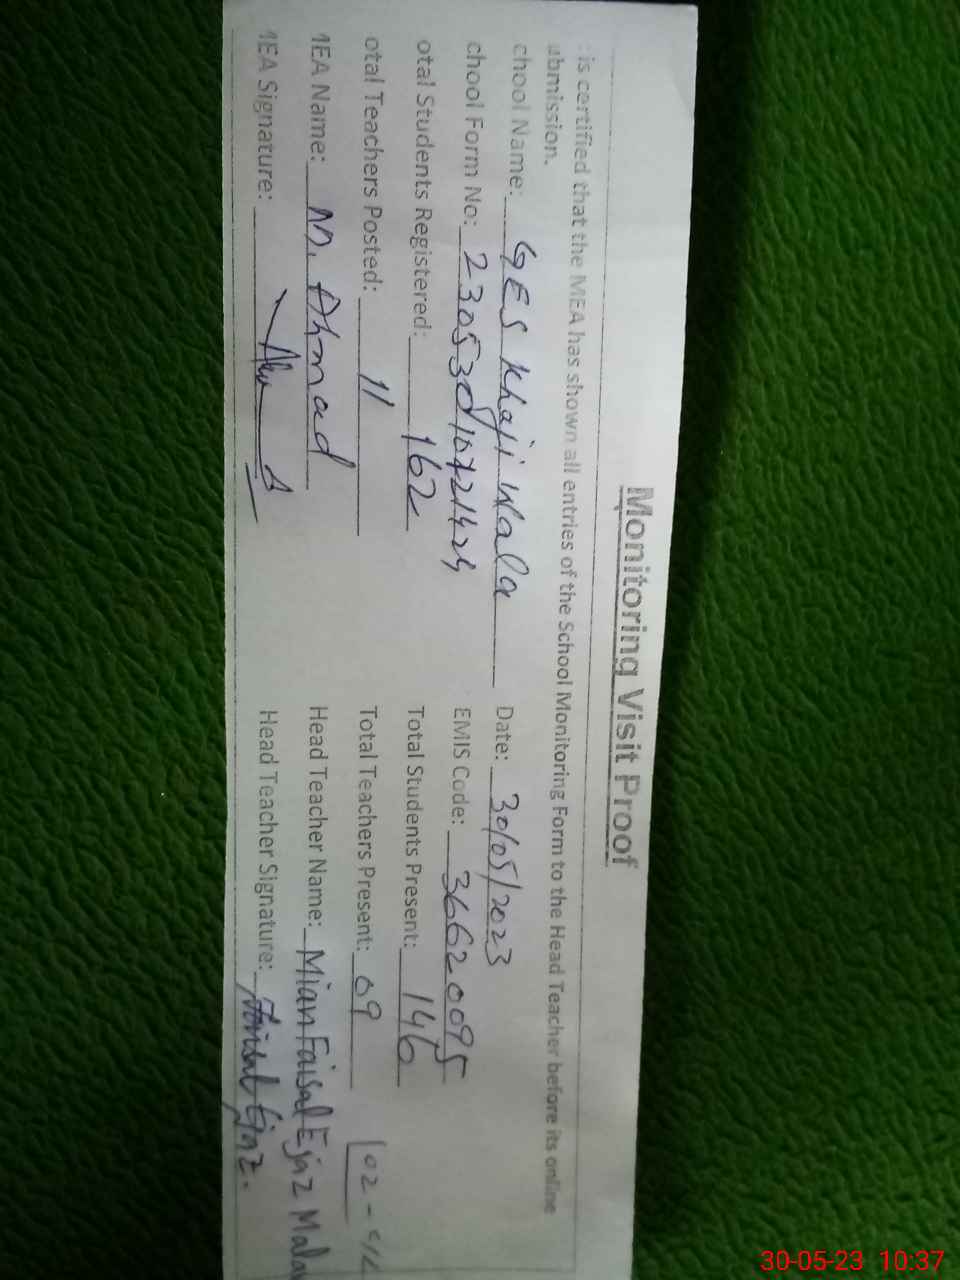 Monitoring Visit Proof
is certified that the MEA has shown all entries of the School Monitoring Form to the Head Teacher before its online
ubmission.
chool Name: GES Khaji Wala Date: 30/05/2023
chool Form No: EMIS Code: 36620095
otal Students Registered: 162 Total Students Present: 146
otal Teachers Posted: 11 Total Teachers Present: 09 02-C/L
MEA Name: M. Ahmad Head Teacher Name: Mian Faisal Ejaz Mala
MEA Signature: Head Teacher Signature: Faisal Ejaz.
30-05-23 10:37